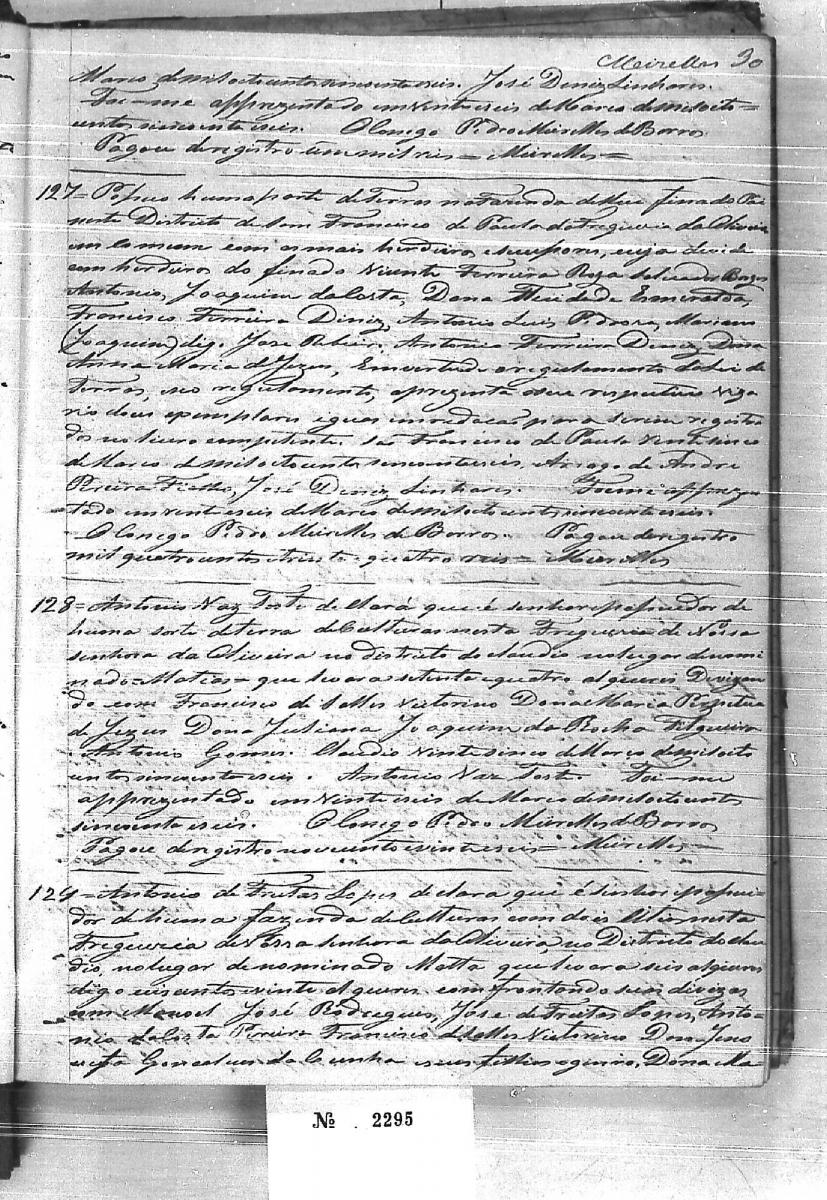 Meirelles 30
Março de mil oitocentos sincoenta e seis. José Deniz Linhares.
Foi-me apprezentado em vinte seis de Março de mil oito=
centos sincoenta e seis. O Conego Pedro Meirelles de Barros
Pagou de registro um mil reis = Meirelles =
127= Possuo huma parte de Terras na Fazenda de Meu finado Pai
neste Districto de Sam Francisco de Paula da Freguezia da Oliveira
em comum com os mais herdeiros, cuja devide
com herdeiros do finado Vicente Ferreira Roza
Antonio, Joaquim da Costa, Dona Esmeralda,
Francisco Ferreira Diniz, Antonio Luis Pedroza, Mariano
(Joaquim) digo, José Ribeiro, Antonio Ferreira Diniz, Dona
Anna Maria de Jezus, Em vertude do regulamento da Lei de
Terras, e seo regulamento, aprezenta a seu respectivo Viga
rio dous exemplares iguaes em redacçaõ para serem registra
dos no livro competente. Saõ Francisco de Paula vinte sinco
de Março de mil oitocentos sincoenta e seis. Arrogo de André
Pereira José Deniz Linhares. Foi-me apprezen
tado em vinte seis de Março de mil oitocentos sincoenta e seis.
O Conego Pedro Meirelles de Barros. Pagou de registro
mil quatrocentos e trinta e quatro reis = Meirelles
128= Antonio Vaz Toste declará que é senhor e possuidor de
huma sorte de terra de Culturas nesta Freguezia de Nossa
senhora da Oliveira no districto do claudio no lugar denomi
nado = Matias = que levara setenta e quatro alqueres Devizan
do com Francisco de Salles Victorino Dona Maria Perpetua
de Jezus Dona Juliana Joaquim da Rocha Filgueira
Antonio Gomes. Claudio vinte sinco de Março de mil oito
centos sincoenta e seis. Antonio Vaz Toste. Foi-me
apprezentado em vinte seis de Março de mil oitocentos
sincoenta e seis. O Conego Pedro Meirelles de Barros
Pagou de registro novecentos e vinte reis = Meirelles =
129= Antonio de Freitas Lopes declara que é senhor e possui
dor de huma fazenda de Culturas com dois nesta
Freguezia de Nossa senhora da Oliveira, no Districto do clau
dio, no lugar denominado Matta que levara seis alqueres
digo cento e vinte alqueres confrontando suas divizas
com Manoel José Rodrigues, Jose de Freitas Lopes, Anto
nio da Costa Pereira Francisco de Salles Victorino Dona
Goncalves da Cunha e seus filhos e genro, Dona Ma
Nº 2295